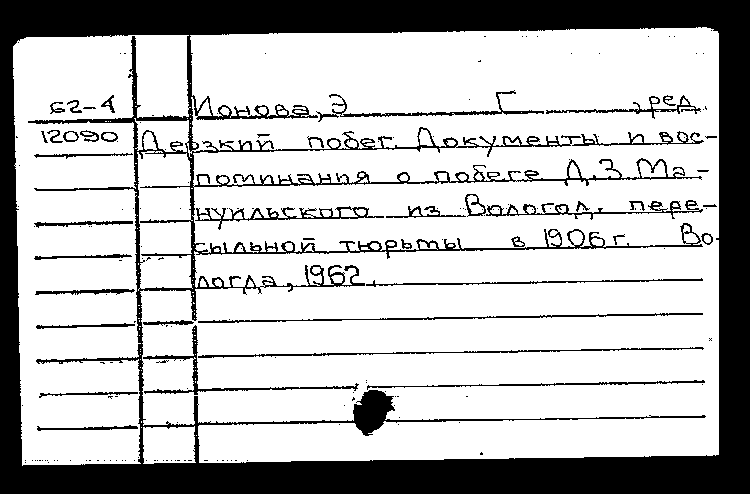 62-4 Ионова, Э Г , ред.
12090 Дерзкий побег. Документы и вос-
поминания о побеге Д.З. Ма-
нуильского из Вологод. пере-
сыльной тюрьмы в 1906 г. Во-
логда, 1962.